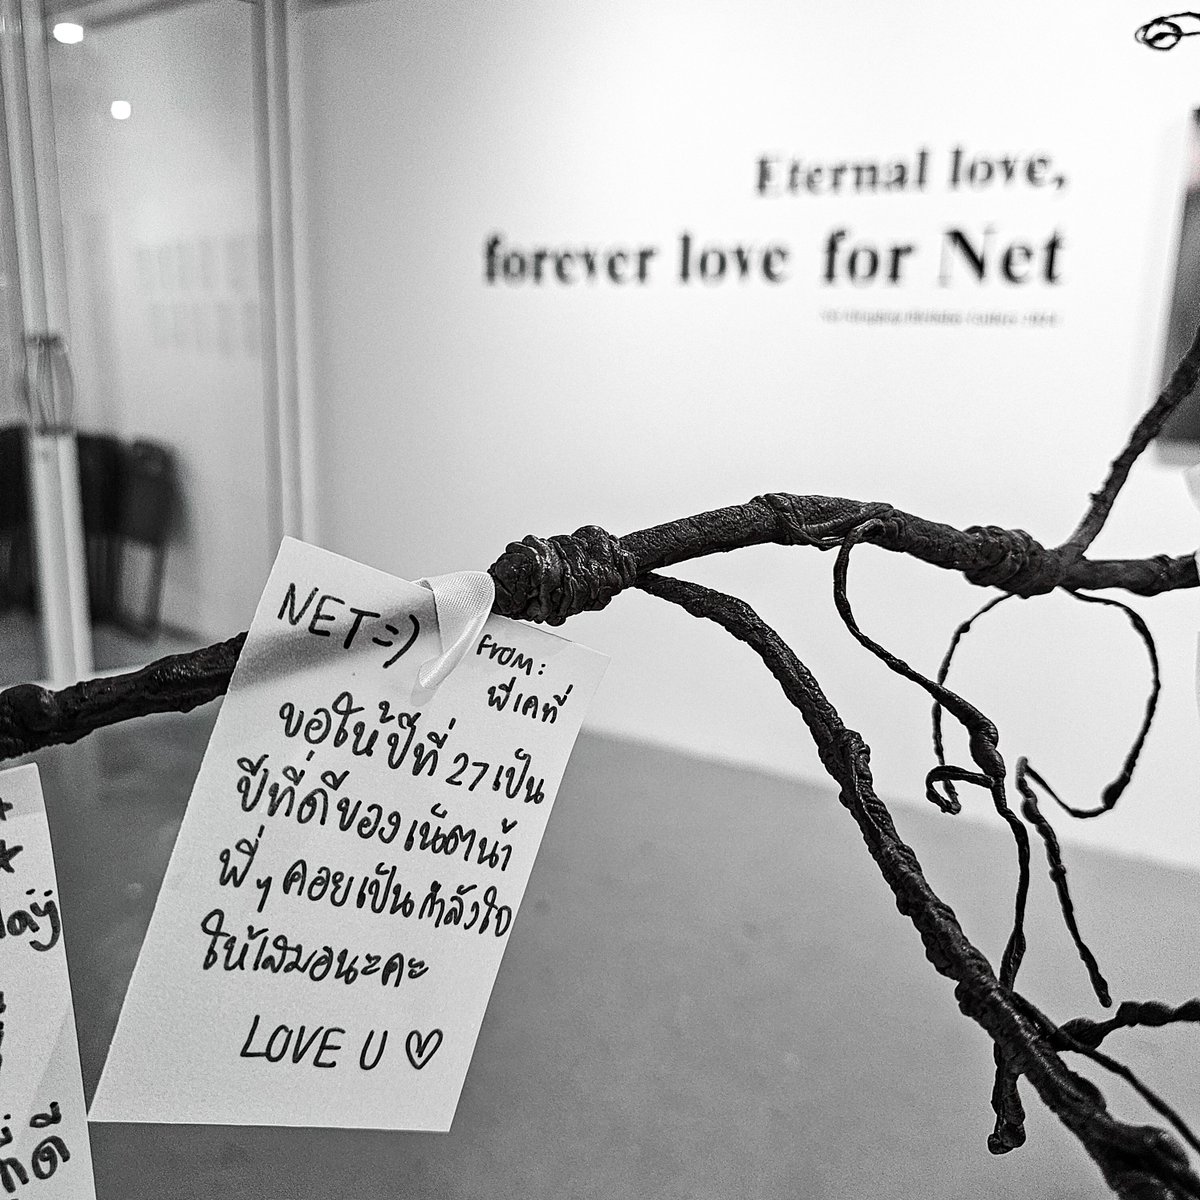 Eternal love,
forever love for Net
NET=)
FROM:
พี่เคที่
ขอให้ปีที่ 27 เป็น
ปีที่ดีของเน็ตน้า
พี่ๆ คอยเป็นกำลังใจ
ให้เสมอนะคะ
LOVE U ♡